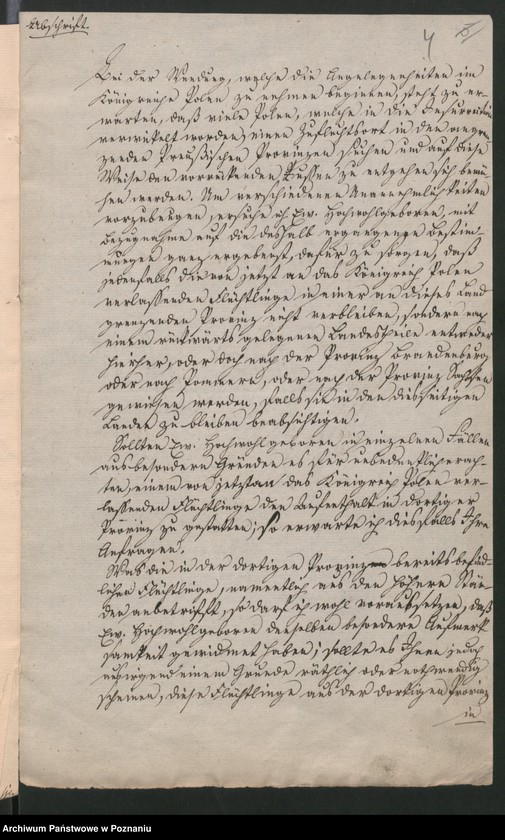 Abschrift.
4
Bei der Wendung, welche die Angelegenheiten im
Königreiche Polen zu nehmen beginnen, steht zu er-
warten, daß viele Polen, welche in die Insurrection
verwickelt worden, einen Zufluchtsort in den angrän-
zenden Preußischen Provinzen suchen und auf diese
Weise den vorrückenden Russen zu entgehen sich bemü-
hen werden. Um verschiedenen Unannehmlichkeiten
vorzubeugen, ersuche ich Ew. Hochwohlgeboren, mit
Bezugnahme auf die deshalb ergangenen Bestim-
mungen ganz ergebenst, dafür zu sorgen, daß
jedenfalls die von jetzt an das Königreich Polen
verlassenden Flüchtlinge in einer an dieses Land
grenzenden Provinz nicht verbleiben, sondern nach
einem rückwärts gelegenen Landestheile entweder
hierher, oder doch nach der Provinz Brandenburg,
oder nach Pommern, oder nach der Provinz Sachsen
gewiesen werden, falls sie in den diesseitigen
Landen zu bleiben beabsichtigen.
Sollten Ew. Hochwohlgeboren in einzelnen Fällen
aus besondern Gründen es für unbedenklich erach-
ten, einem von jetzt an das Königreich Polen ver-
lassenden Flüchtlinge den Aufenthalt in dortiger
Provinz zu gestatten; so erwarte ich diesfalls Ihre
Anfragen.
Was die in der dortigen Provinz bereits befind-
lichen Flüchtlinge, namentlich aus den höhern Stän-
den anbetrifft, so darf ich wohl voraussetzen, daß
Ew. Hochwohlgeboren denselben besondere Aufmerk-
samkeit gewidmet haben; sollte es Ihnen jedoch
aus irgend einem Grunde räthlich oder nothwendig
scheinen, diese Flüchtlinge aus der dortigen Provinz
in
Archiwum Państwowe w Poznaniu